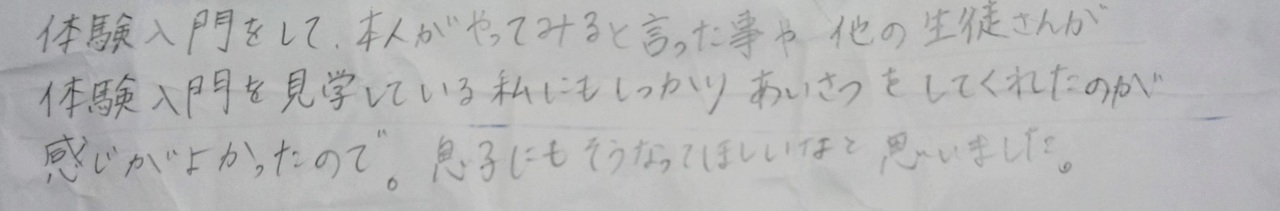 体験入門をして、本人がやってみると言った事や 他の生徒さんが
体験入門を見学している私にもしっかり あいさつをしてくれたのが
感じがよかったので。息子にもそうなってほしいなと思いました。